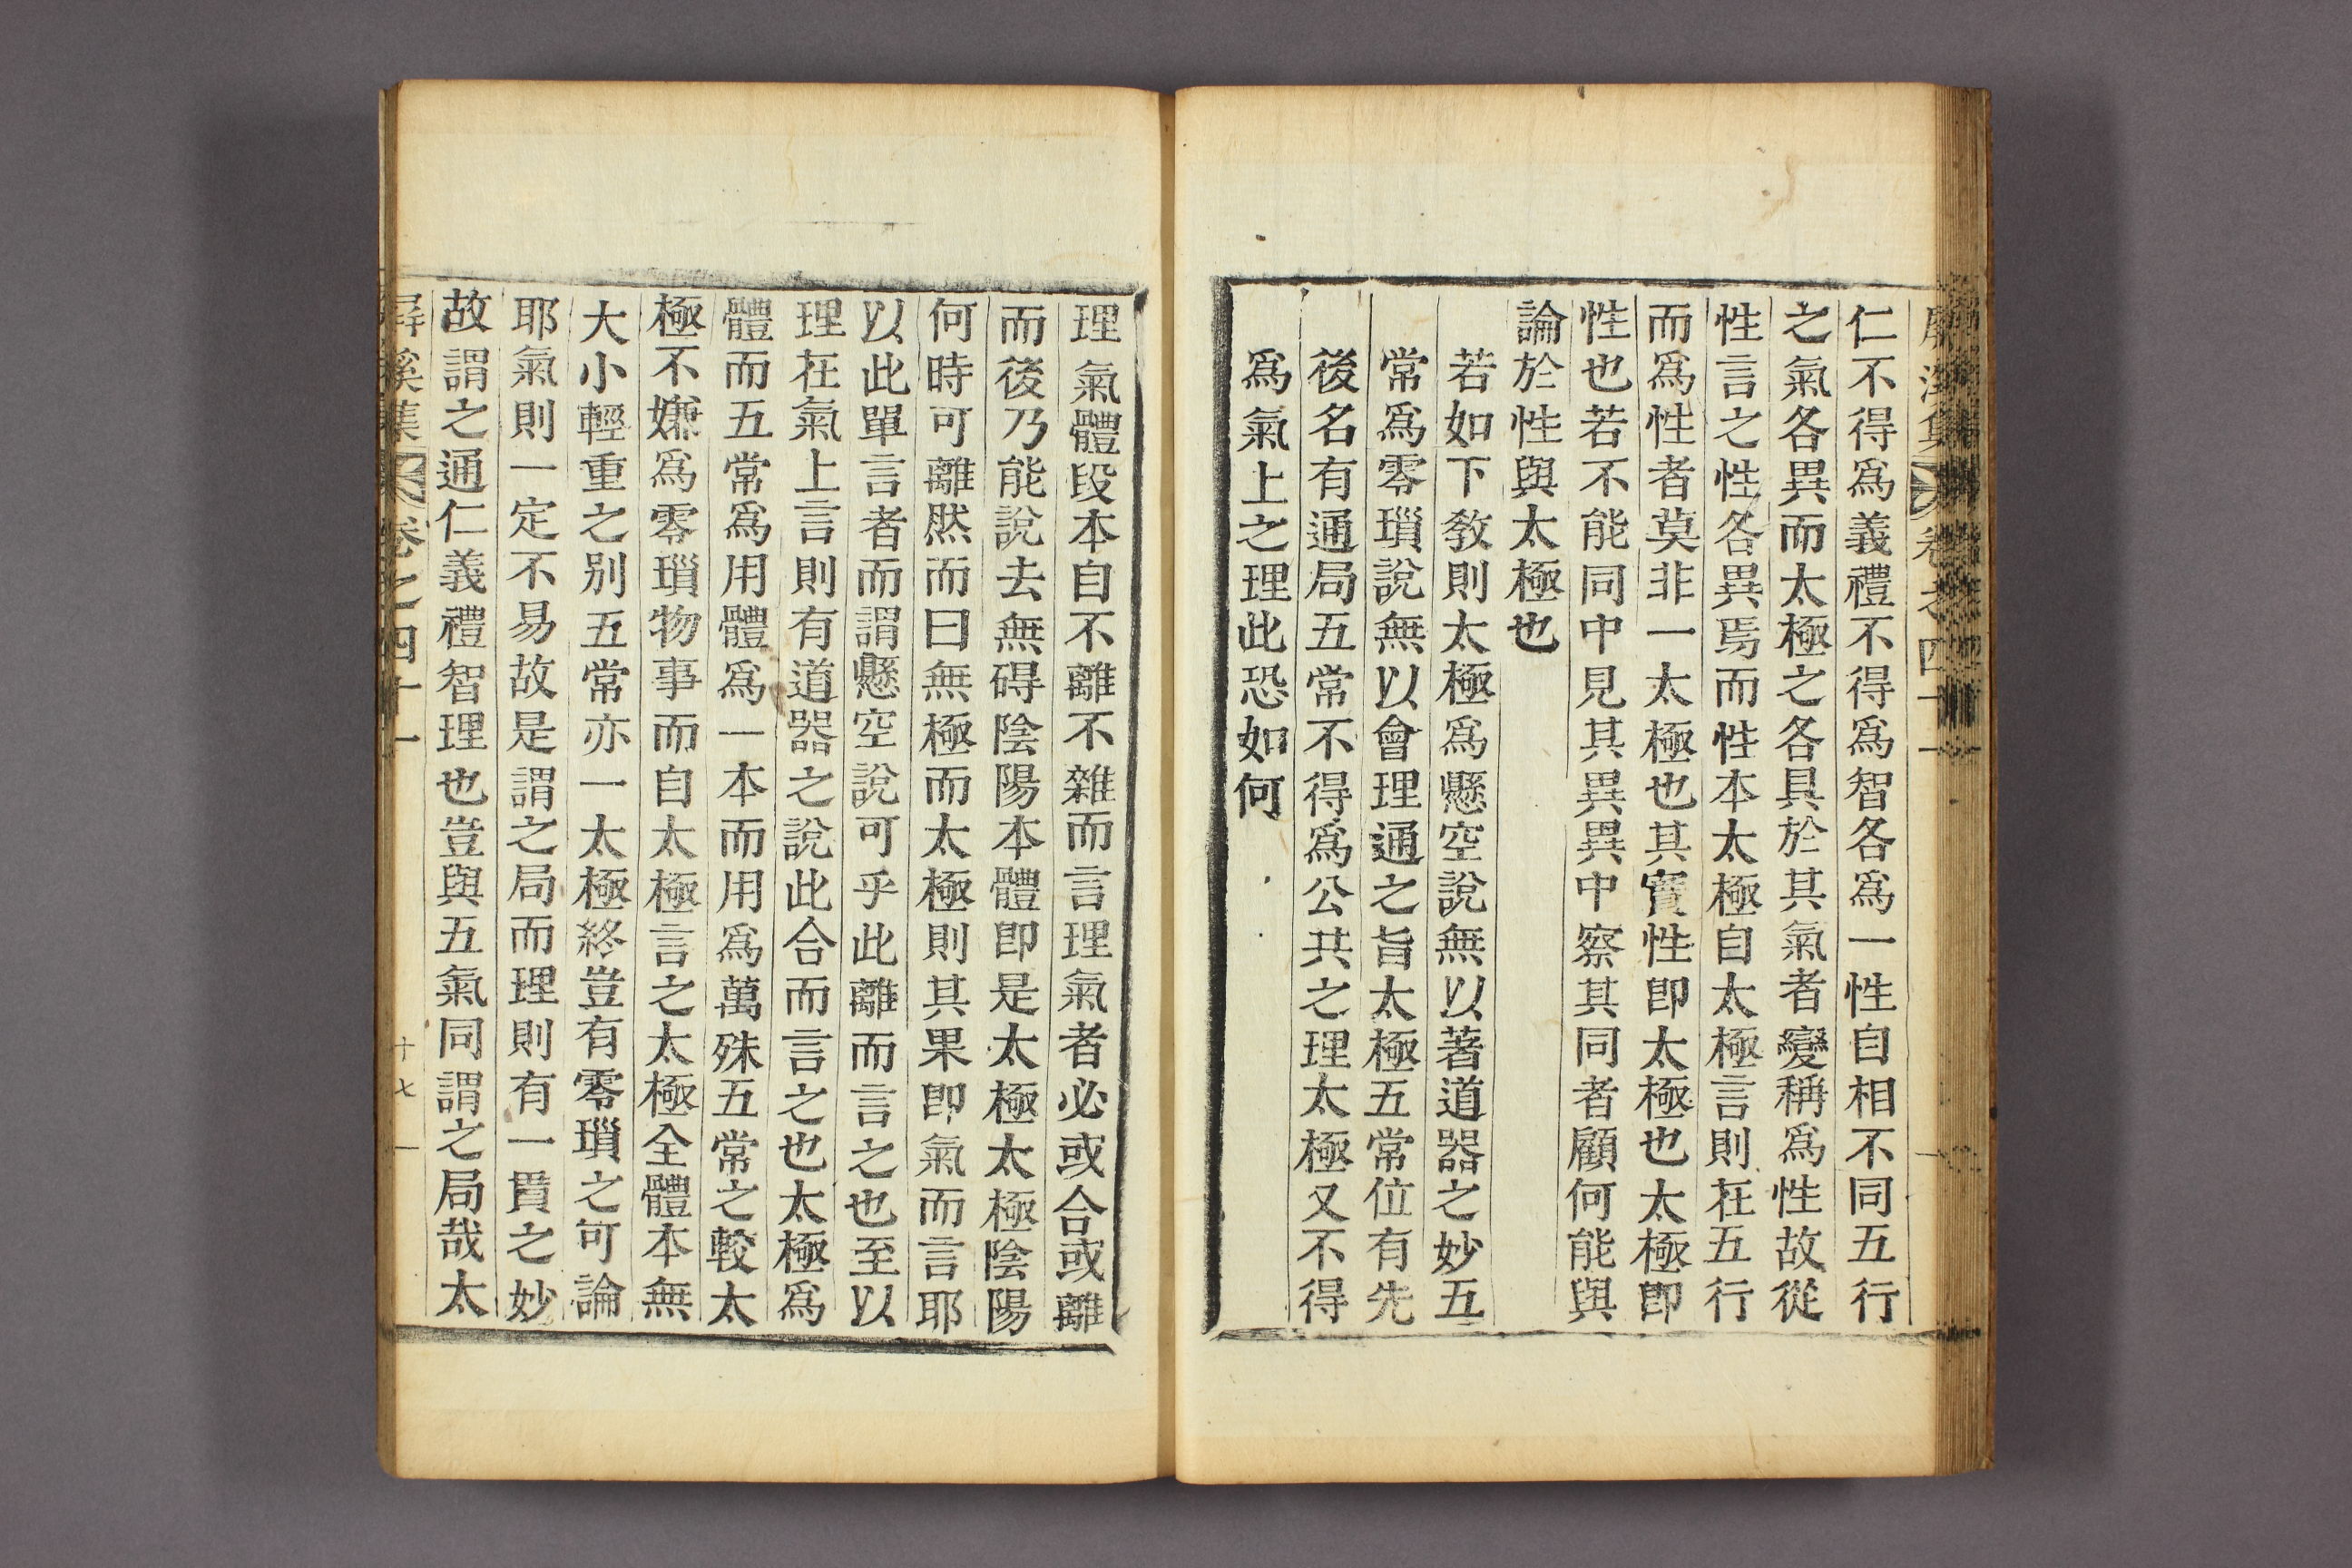 屛溪集 卷之四十一
仁不得爲義禮不得爲智各爲一性自相不同五行
之氣各異而太極之各具於其氣者變稱爲性故從
性言之性各異焉而性本太極自太極言則在五行
而爲性者莫非一太極也其實性卽太極也太極卽
性也若不能同中見其異異中察其同者顧何能與
論於性與太極也
若如下敎則太極爲懸空說無以著道器之妙五
常爲零瑣說無以會理通之旨太極五常位有先
後名有通局五常不得爲公共之理太極又不得
爲氣上之理此恐如何
理氣體段本自不離不雜而言理氣者必或合或離
而後乃能說去無碍陰陽本體卽是太極太極陰陽
何時可離然而曰無極而太極則其果卽氣而言耶
以此單言者而謂懸空說可乎此離而言之也至以
理在氣上言則有道器之說此合而言之也太極爲
體而五常爲用體爲一本而用爲萬殊五常之較太
極不嫌爲零瑣物事而自太極言之太極全體本無
大小輕重之別五常亦一太極終豈有零瑣之可論
耶氣則一定不易故是謂之局而理則有一貫之妙
故謂之通仁義禮智理也豈與五氣同謂之局哉太
屛溪集 卷之四十一 十七